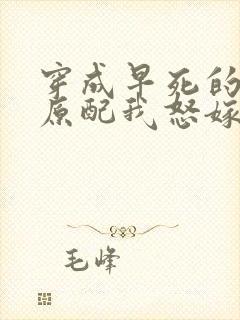 穿成早死的
原配我怒嫁
毛峰